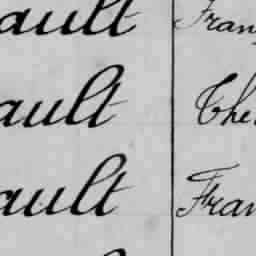 ault Fran
ault The
ault Fran